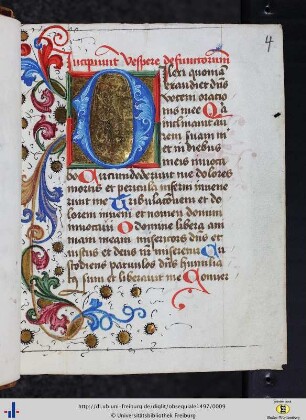 4
Incipiunt Vespere defunctorum
Dilexi quoniam
exaudiet dns
vocem oratio
nis mee Quia
inclinavit au
rem suam mi
et in diebus
meis invoca
bo Circumdederunt me dolores
mortis et pericula inferni invene
runt me Tribulacionem et do
lorem inveni et nomen domini
invocavi O domine libera ani
mam meam misericors dns et
iustus et deus nr miseretur Cu
stodiens parvulos dns humilia
tus sum et liberavit me Conver
http://dl.ub.uni-freiburg.de/diglit/obsequiale1497/0009
© Universitätsbibliothek Freiburg